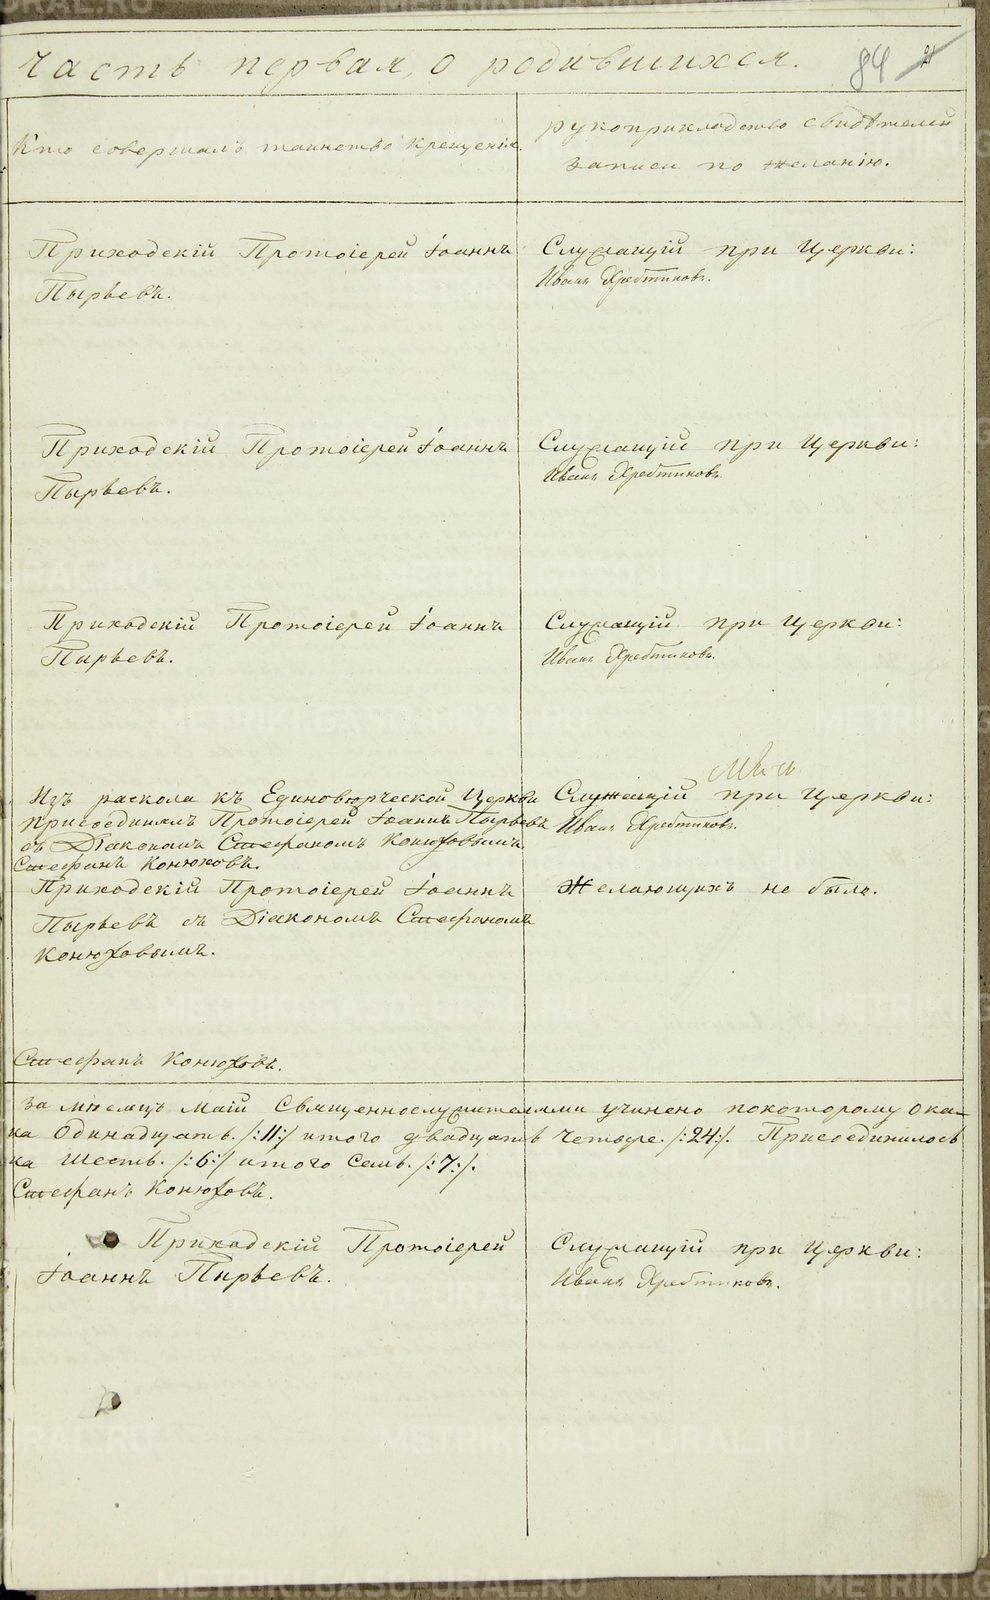 Часть первая, о родившихся. 84
Кто совершалъ таинство крещенія.
рукоприкладство свидѣтелей
записи по желанію.
Приходскій Протоіерей Іоаннъ
Пырьевъ.
Служащій при Церкви:
Иванъ Хребтиковъ.
Приходскій Протоіерей Іоаннъ
Пырьевъ.
Служащій при Церкви:
Иванъ Хребтиковъ.
Приходскій Протоіерей Іоаннъ
Пырьевъ.
Служащій при Церкви:
Иванъ Хребтиковъ.
Изъ раскола къ Единовѣрческой Церкви
присоединилъ Протоіерей Іоаннъ Пырьевъ
съ Діакономъ Стефаномъ Конюховымъ
Стефанъ Конюховъ.
Служащій при Церкви:
Иванъ Хребтиковъ.
Приходскій Протоіерей Іоаннъ
Пырьевъ съ Діакономъ Стефаномъ
Конюховымъ.
Желающихъ не былъ.
Стефанъ Конюховъ.
за мѣсяцъ Маій Священнослужителями учинено покоторому ока-
ка Одинадцать. /:11:/ итого двадцать четыре. /:24:/. Присоединилось
ка Шесть. /:6:/ итого Семь. /:7:/.
Стефанъ Конюховъ.
Приходскій Протоіерей
Іоаннъ Пырьевъ.
Служащій при Церкви:
Иванъ Хребтиковъ.
METRIKI.GASO-URAL.RU